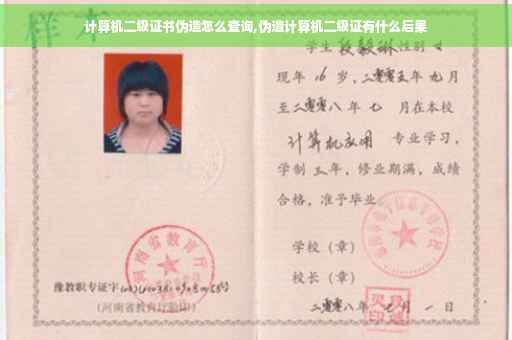 计算机二级证书伪造怎么查询,伪造计算机二级证有什么后果
样本
学生段毅琳性别女
现年16岁，二零零五年九月
至二零零八年七月在本校
计算机应用 专业学习，
学制三年，修业期满，成绩
合格，准予毕业
学校（章）
校长（章）
二零零八年七月一日
河南省教育厅
豫教职专证字
(河南省教育厅验印)